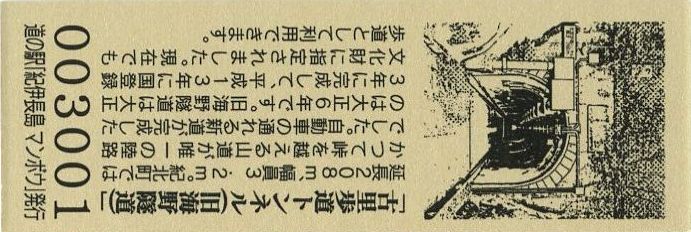 「古里歩道トンネル(旧海野隧道)」
延長208m、幅員3.2m。紀北町では
かつて峠を越える山道が唯一の陸路
でした。自動車の通れる新道が完成した
のは大正6年です。旧海野隧道は大正
3年に完成して、平成13年に国登録
文化財に指定されました。現在でも
歩道として利用できます。
003001
道の駅「紀伊長島 マンボウ」発行